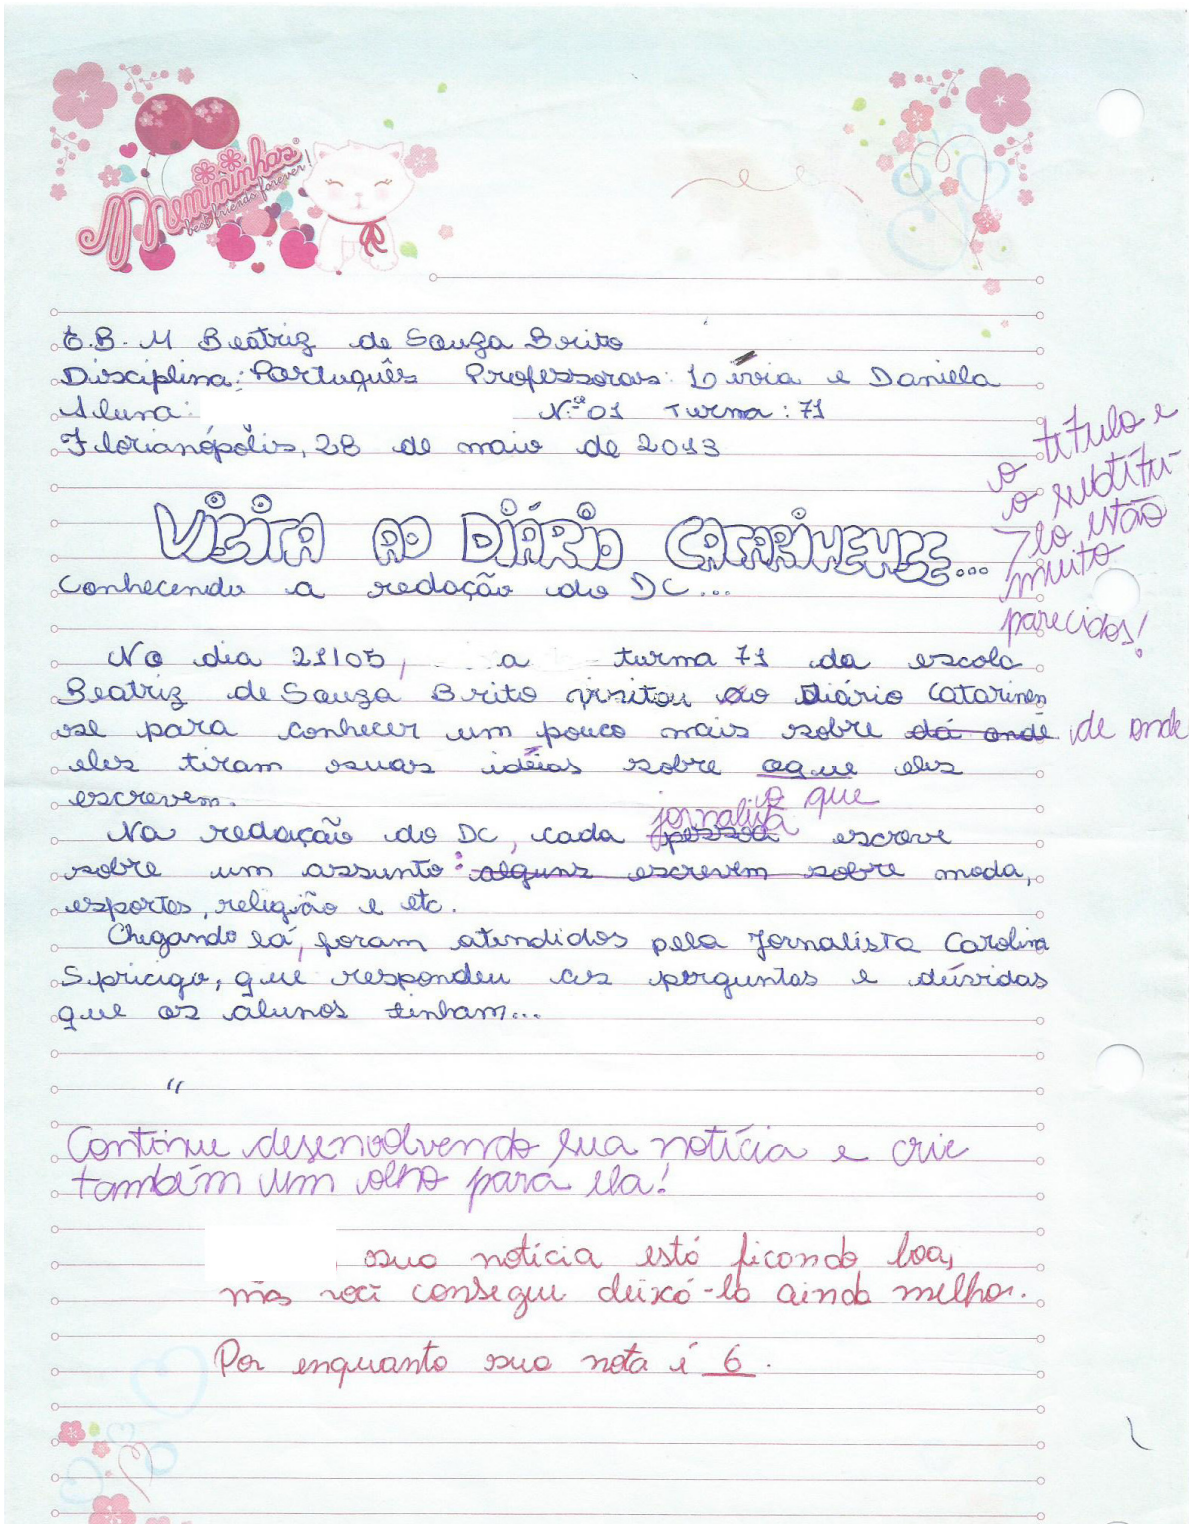 Menininhas
best friends forever!
E.B.M Beatriz de Souza Brito
Disciplina: Português Professoras: Lívia e Daniela
Aluna: Nº 01 Turma: 71
Florianópolis, 28 de maio de 2013
o título e
o subtítu-
lo estão
muito
parecidos!
VISITA AO DIÁRIO CATARINENSE...
Conhecendo a redação do DC...
No dia 21/05, a turma 71 da escola
Beatriz de Souza Brito visitou ao diário Catarinen
se para conhecer um pouco mais sobre da onde de onde
eles tiram suas idéias sobre oque eles
o que
escrevem.
jornalista
Na redação do DC, cada pessoa escreve
sobre um assunto: alguns escrevem sobre moda,
esportes, religião e etc.
Chegando lá, foram atendidos pela Jornalista Carolina
Spricigo, que respondeu as perguntas e dúvidas
que os alunos tinham...
"
Continue desenvolvendo sua notícia e crie
também um olho para ela!
, sua notícia está ficando boa,
mas você consegue deixá-la ainda melhor.
Por enquanto sua nota é 6.